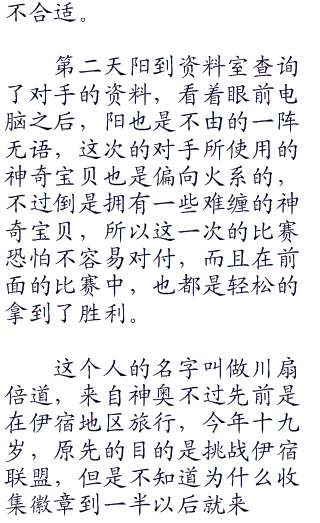 不合适。
第二天阳到资料室查询
了对手的资料，看着眼前电
脑之后，阳也是不由的一阵
无语，这次的对手所使用的
神奇宝贝也是偏向火系的，
不过倒是拥有一些难缠的神
奇宝贝，所以这一次的比赛
恐怕不容易对付，而且在前
面的比赛中，也都是轻松的
拿到了胜利。
这个人的名字叫做川扇
倍道，来自神奥不过先前是
在伊宿地区旅行，今年十九
岁，原先的目的是挑战伊宿
联盟，但是不知道为什么收
集徽章到一半以后就来